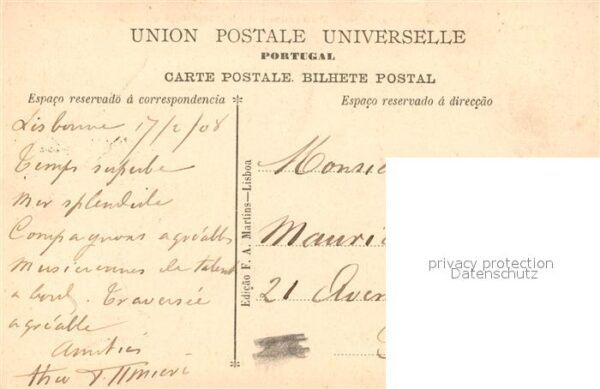 UNION POSTALE UNIVERSELLE
PORTUGAL
CARTE POSTALE. BILHETE POSTAL
Espaço reservado á correspondencia
Espaço reservado á direcção
Lisbonne 17/2/08
Temps superbe
Mer splendide
Compagnons agréables
Musiciennes de talent
a bord. Traversée
agréable
Amitiés
Edição F. A. Martins—Lisboa
Monsie
Mauri
21 Aven
privacy protection
Datenschutz